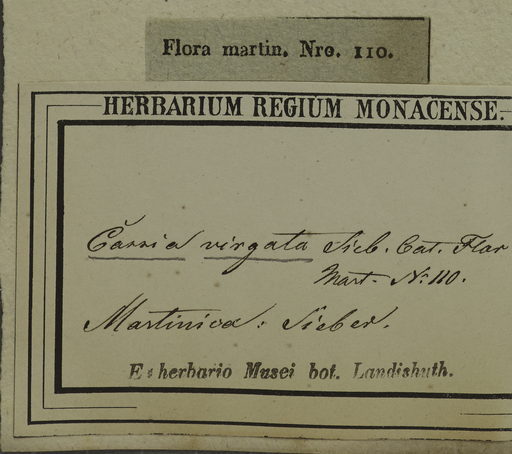 Flora martin. Nro. 110.
HERBARIUM REGIUM MONACENSE.
Cassia virgata Sieb. Cat. Flor
Mart. No. 110.
Martinica: Sieber.
E herbario Musei bot. Landishuth.